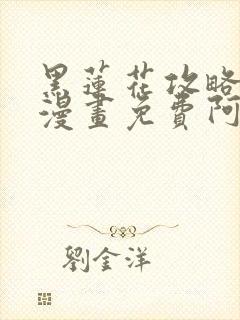 黑蓮花攻略
漫畫免費阿
劉金洋